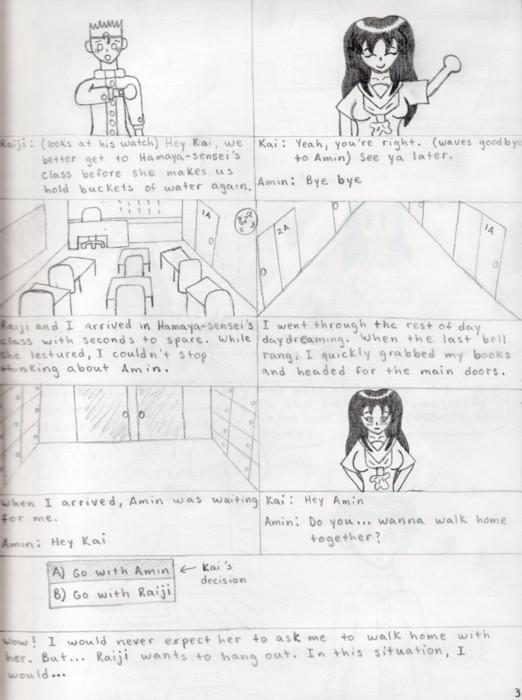 Raiji: (looks at his watch) Hey Kai, we
better get to Hamaya-sensei's
class before she makes us
hold buckets of water again.
Kai: Yeah, you're right. (waves goodbye
to Amin) See ya later.
Amin: Bye bye
1A
2A
1A
Raiji and I arrived in Hamaya-sensei's
class with seconds to spare. While
she lectured, I couldn't stop
thinking about Amin.
I went through the rest of day
daydreaming. When the last bell
rang, I quickly grabbed my books
and headed for the main doors.
When I arrived, Amin was waiting
for me.
Amin: Hey Kai
Kai: Hey Amin
Amin: Do you... wanna walk home
together?
A) Go with Amin
B) Go with Raiji
← Kai's
decision
Wow! I would never expect her to ask me to walk home with
her. But... Raiji wants to hang out. In this situation, I
would...
3